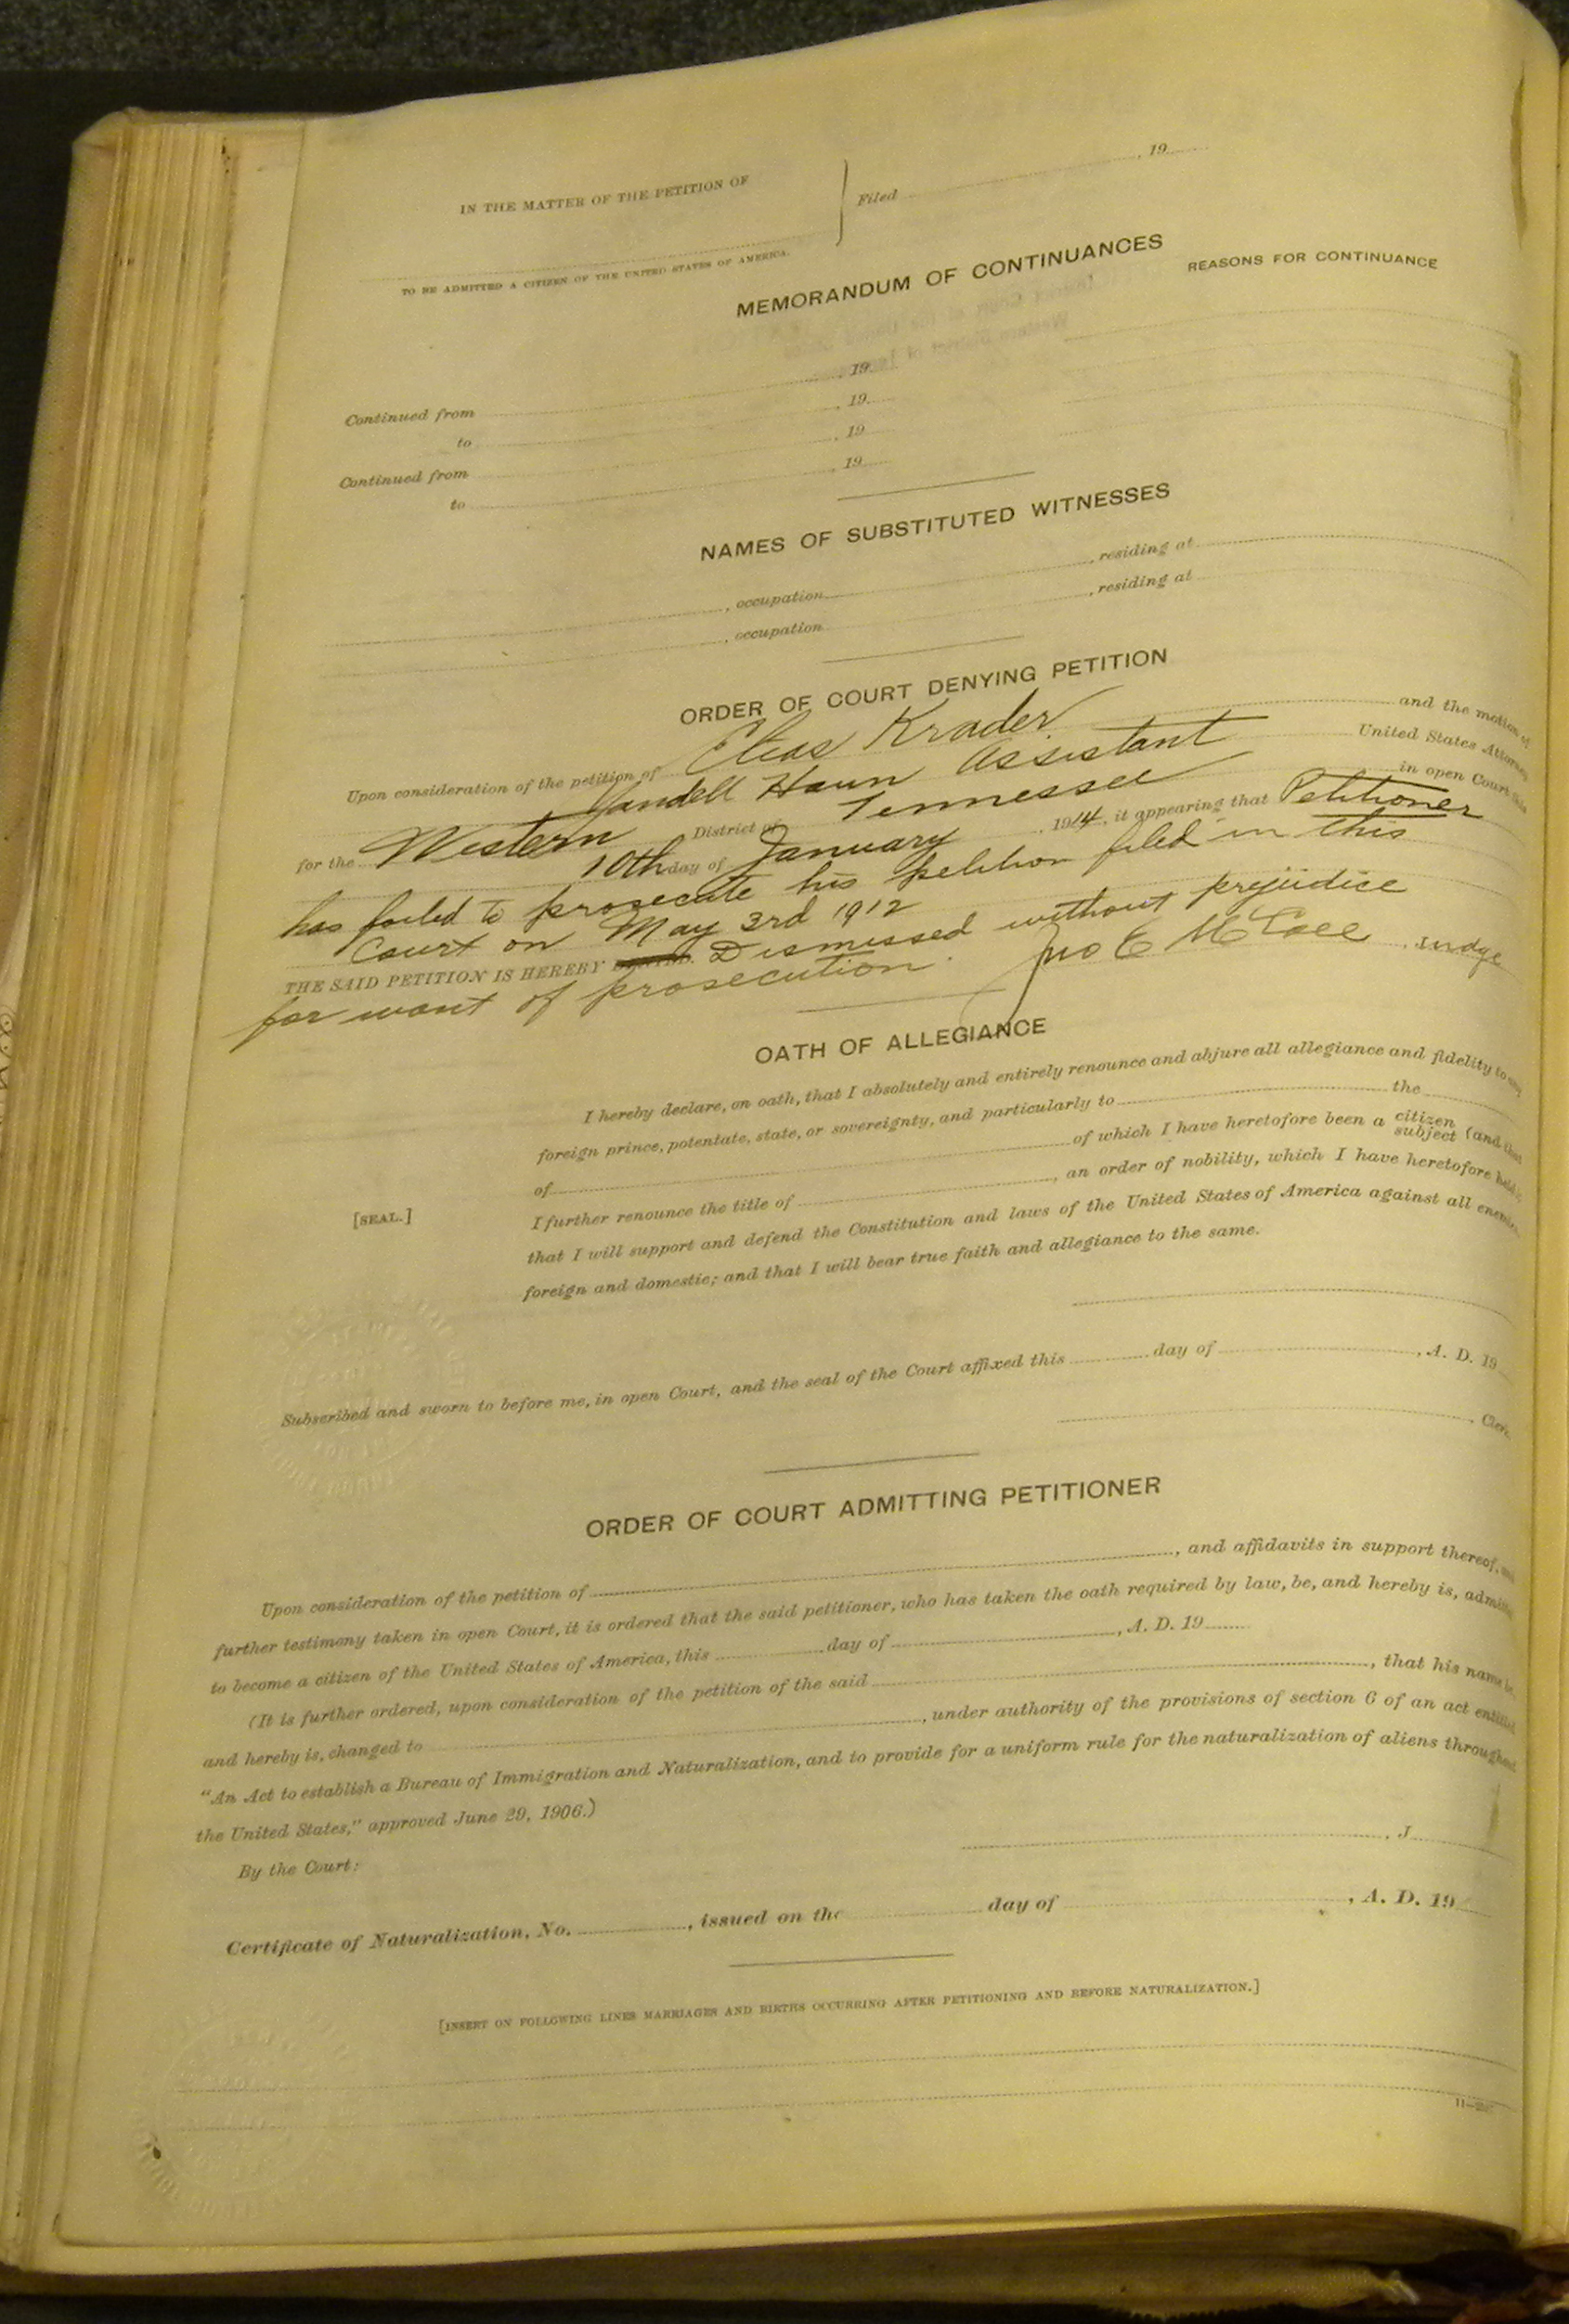 IN THE MATTER OF THE PETITION OF
Filed , 19
TO BE ADMITTED A CITIZEN OF THE UNITED STATES OF AMERICA.
MEMORANDUM OF CONTINUANCES
REASONS FOR CONTINUANCE
Continued from , 19
to , 19
Continued from , 19
to , 19
NAMES OF SUBSTITUTED WITNESSES
, occupation , residing at
, occupation , residing at
ORDER OF COURT DENYING PETITION
Upon consideration of the petition of Elias Krader and the motion of
Yandell Haun Assistant United States Attorney
for the Western District of Tennessee in open Court this
10th day of January , 1914, it appearing that Petitioner
has failed to prosecute his petition filed in this
Court on May 3rd 1912
THE SAID PETITION IS HEREBY DENIED. Dismissed without prejudice
for want of prosecution. Jno E McCall , Judge
OATH OF ALLEGIANCE
I hereby declare, on oath, that I absolutely and entirely renounce and abjure all allegiance and fidelity to any
foreign prince, potentate, state, or sovereignty, and particularly to the
of of which I have heretofore been a citizen subject (and that
[SEAL.] I further renounce the title of , an order of nobility, which I have heretofore held);
that I will support and defend the Constitution and laws of the United States of America against all enemies,
foreign and domestic; and that I will bear true faith and allegiance to the same.
Subscribed and sworn to before me, in open Court, and the seal of the Court affixed this day of , A. D. 19
, Clerk.
ORDER OF COURT ADMITTING PETITIONER
Upon consideration of the petition of , and affidavits in support thereof, and
further testimony taken in open Court, it is ordered that the said petitioner, who has taken the oath required by law, be, and hereby is, admitted
to become a citizen of the United States of America, this day of , A. D. 19
(It is further ordered, upon consideration of the petition of the said , that his name be,
and hereby is, changed to , under authority of the provisions of section 6 of an act entitled
"An Act to establish a Bureau of Immigration and Naturalization, and to provide for a uniform rule for the naturalization of aliens throughout
the United States," approved June 29, 1906.)
By the Court:
, J
Certificate of Naturalization, No. , issued on the day of , A. D. 19
[INSERT ON FOLLOWING LINES MARRIAGES AND BIRTHS OCCURRING AFTER PETITIONING AND BEFORE NATURALIZATION.]